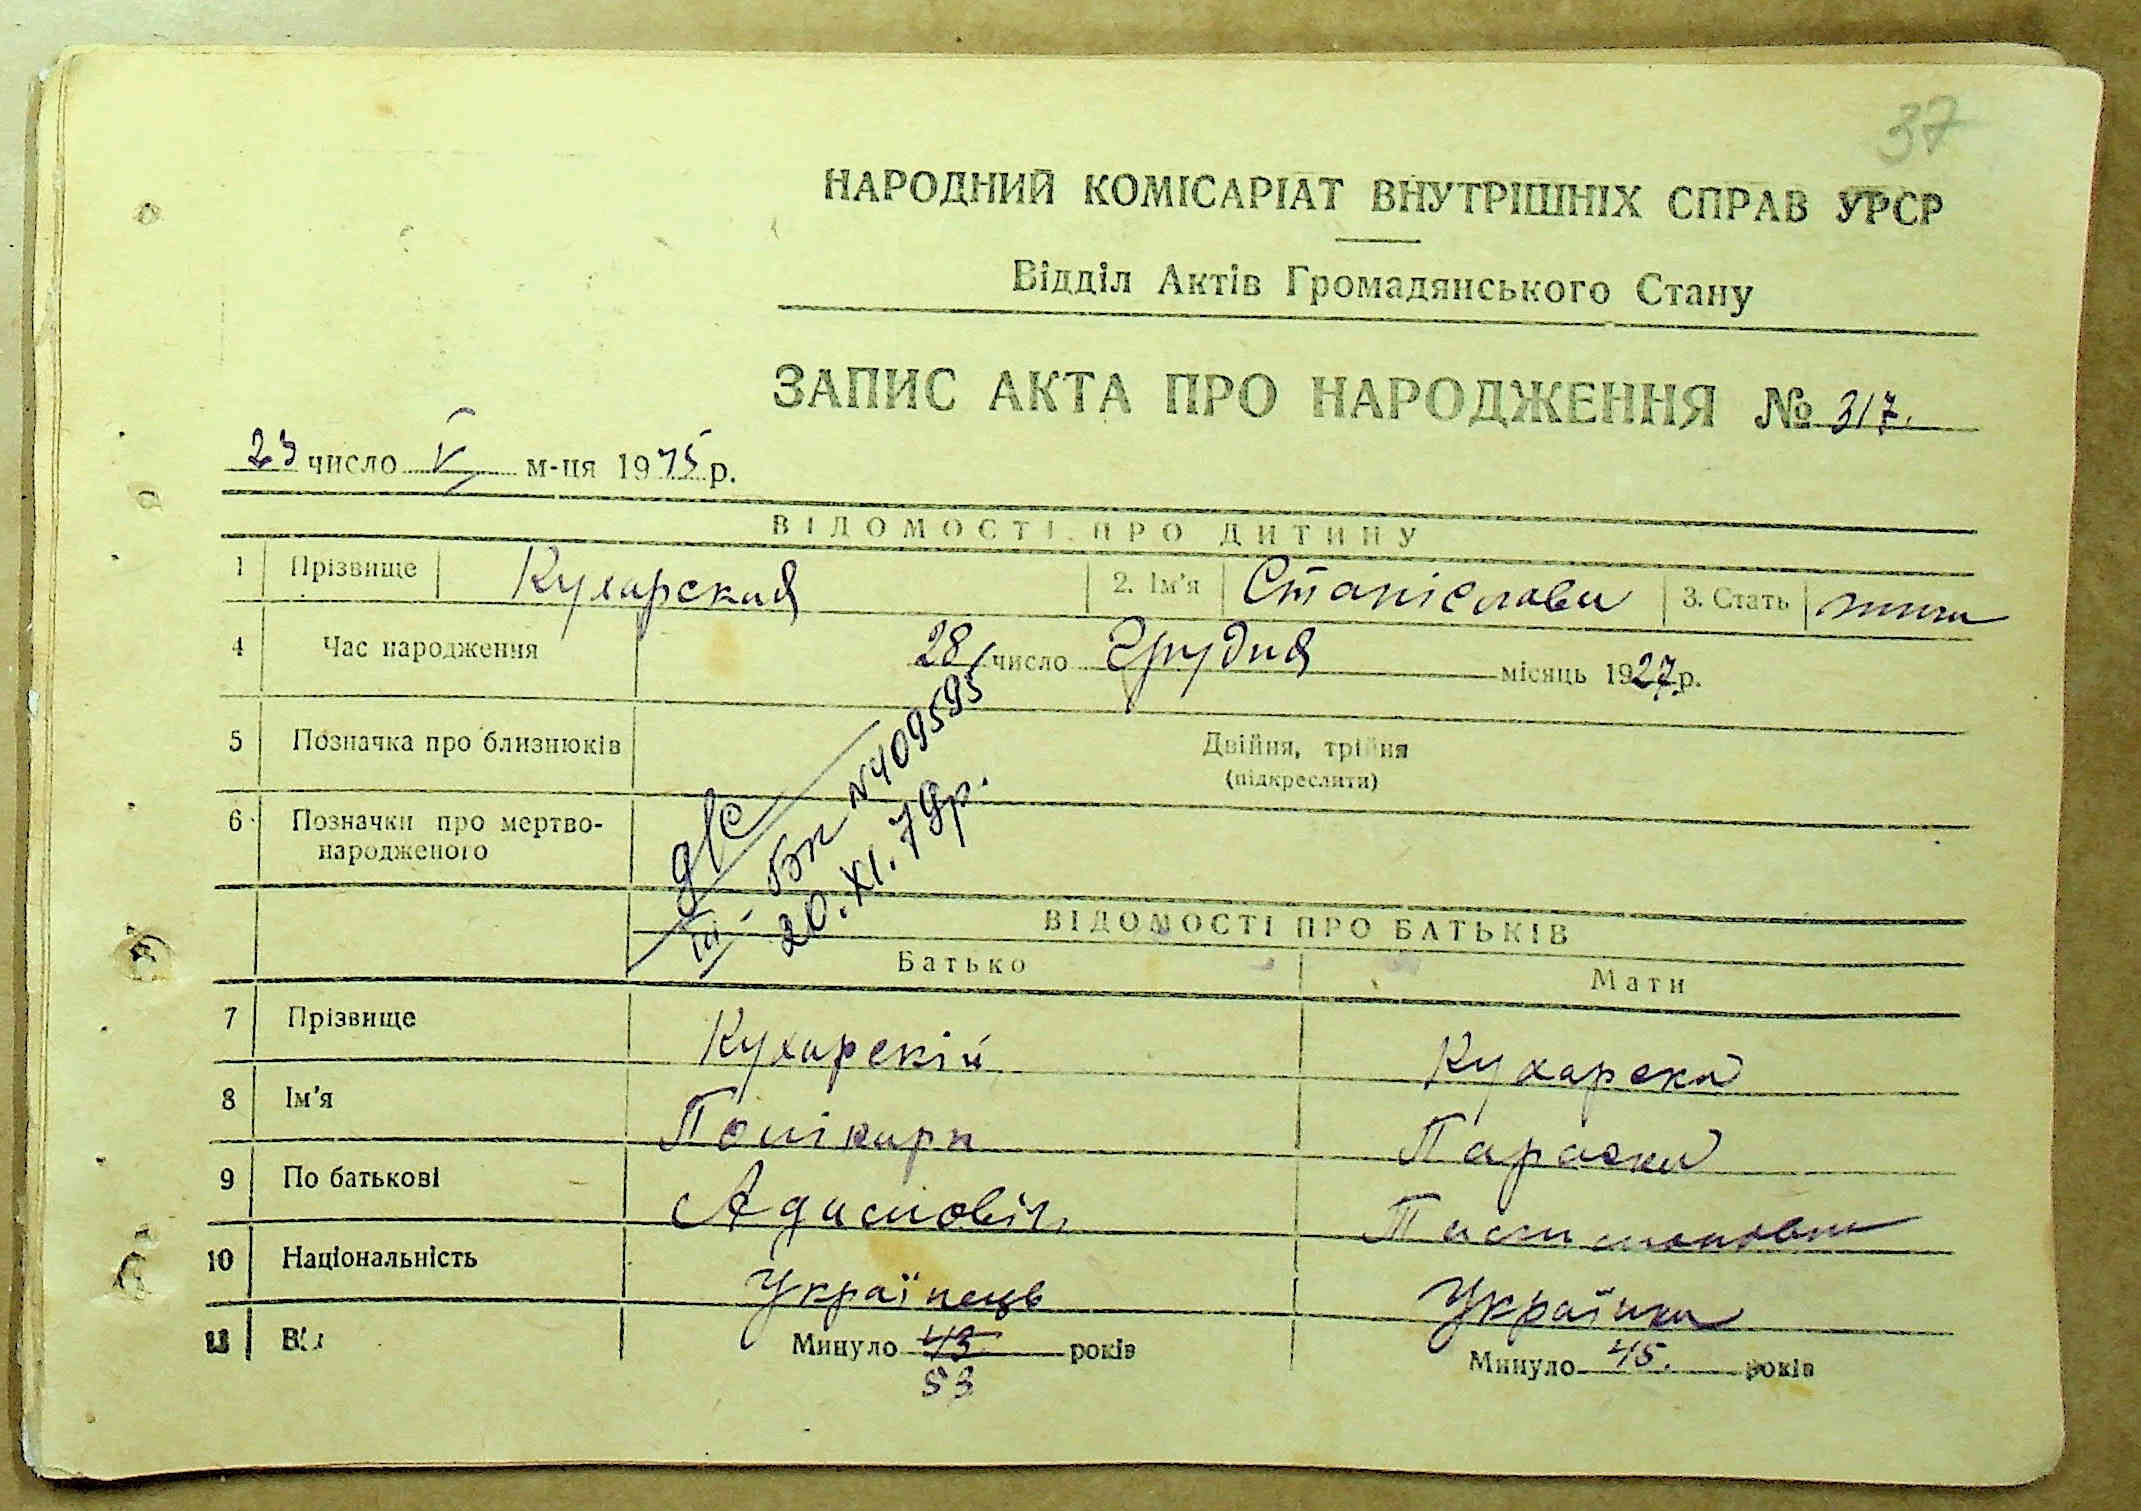 37
НАРОДНИЙ КОМІСАРІАТ ВНУТРІШНІХ СПРАВ УРСР
Відділ Актів Громадянського Стану
ЗАПИС АКТА ПРО НАРОДЖЕННЯ № 317.
23 число V м-ця 1945 р.
ВІДОМОСТІ ПРО ДИТИНУ
1 Прізвище Кухарская 2. Ім'я Станіслава 3. Стать жіноч
4 Час народження 28 число Грудня місяць 1927 р.
5 Позначка про близнюків Двійня, трійня
(підкреслити)
6 Позначки про мертво-
народженого
III-БК №409595
20.XI.79р.
ВІДОМОСТІ ПРО БАТЬКІВ
Батько Мати
7 Прізвище Кухарскій Кухарска
8 Ім'я Полікарп Параска
9 По батькові Адамовіч
10 Національність Українець Українка
11 Вік Минуло 43 років Минуло 45. років
53